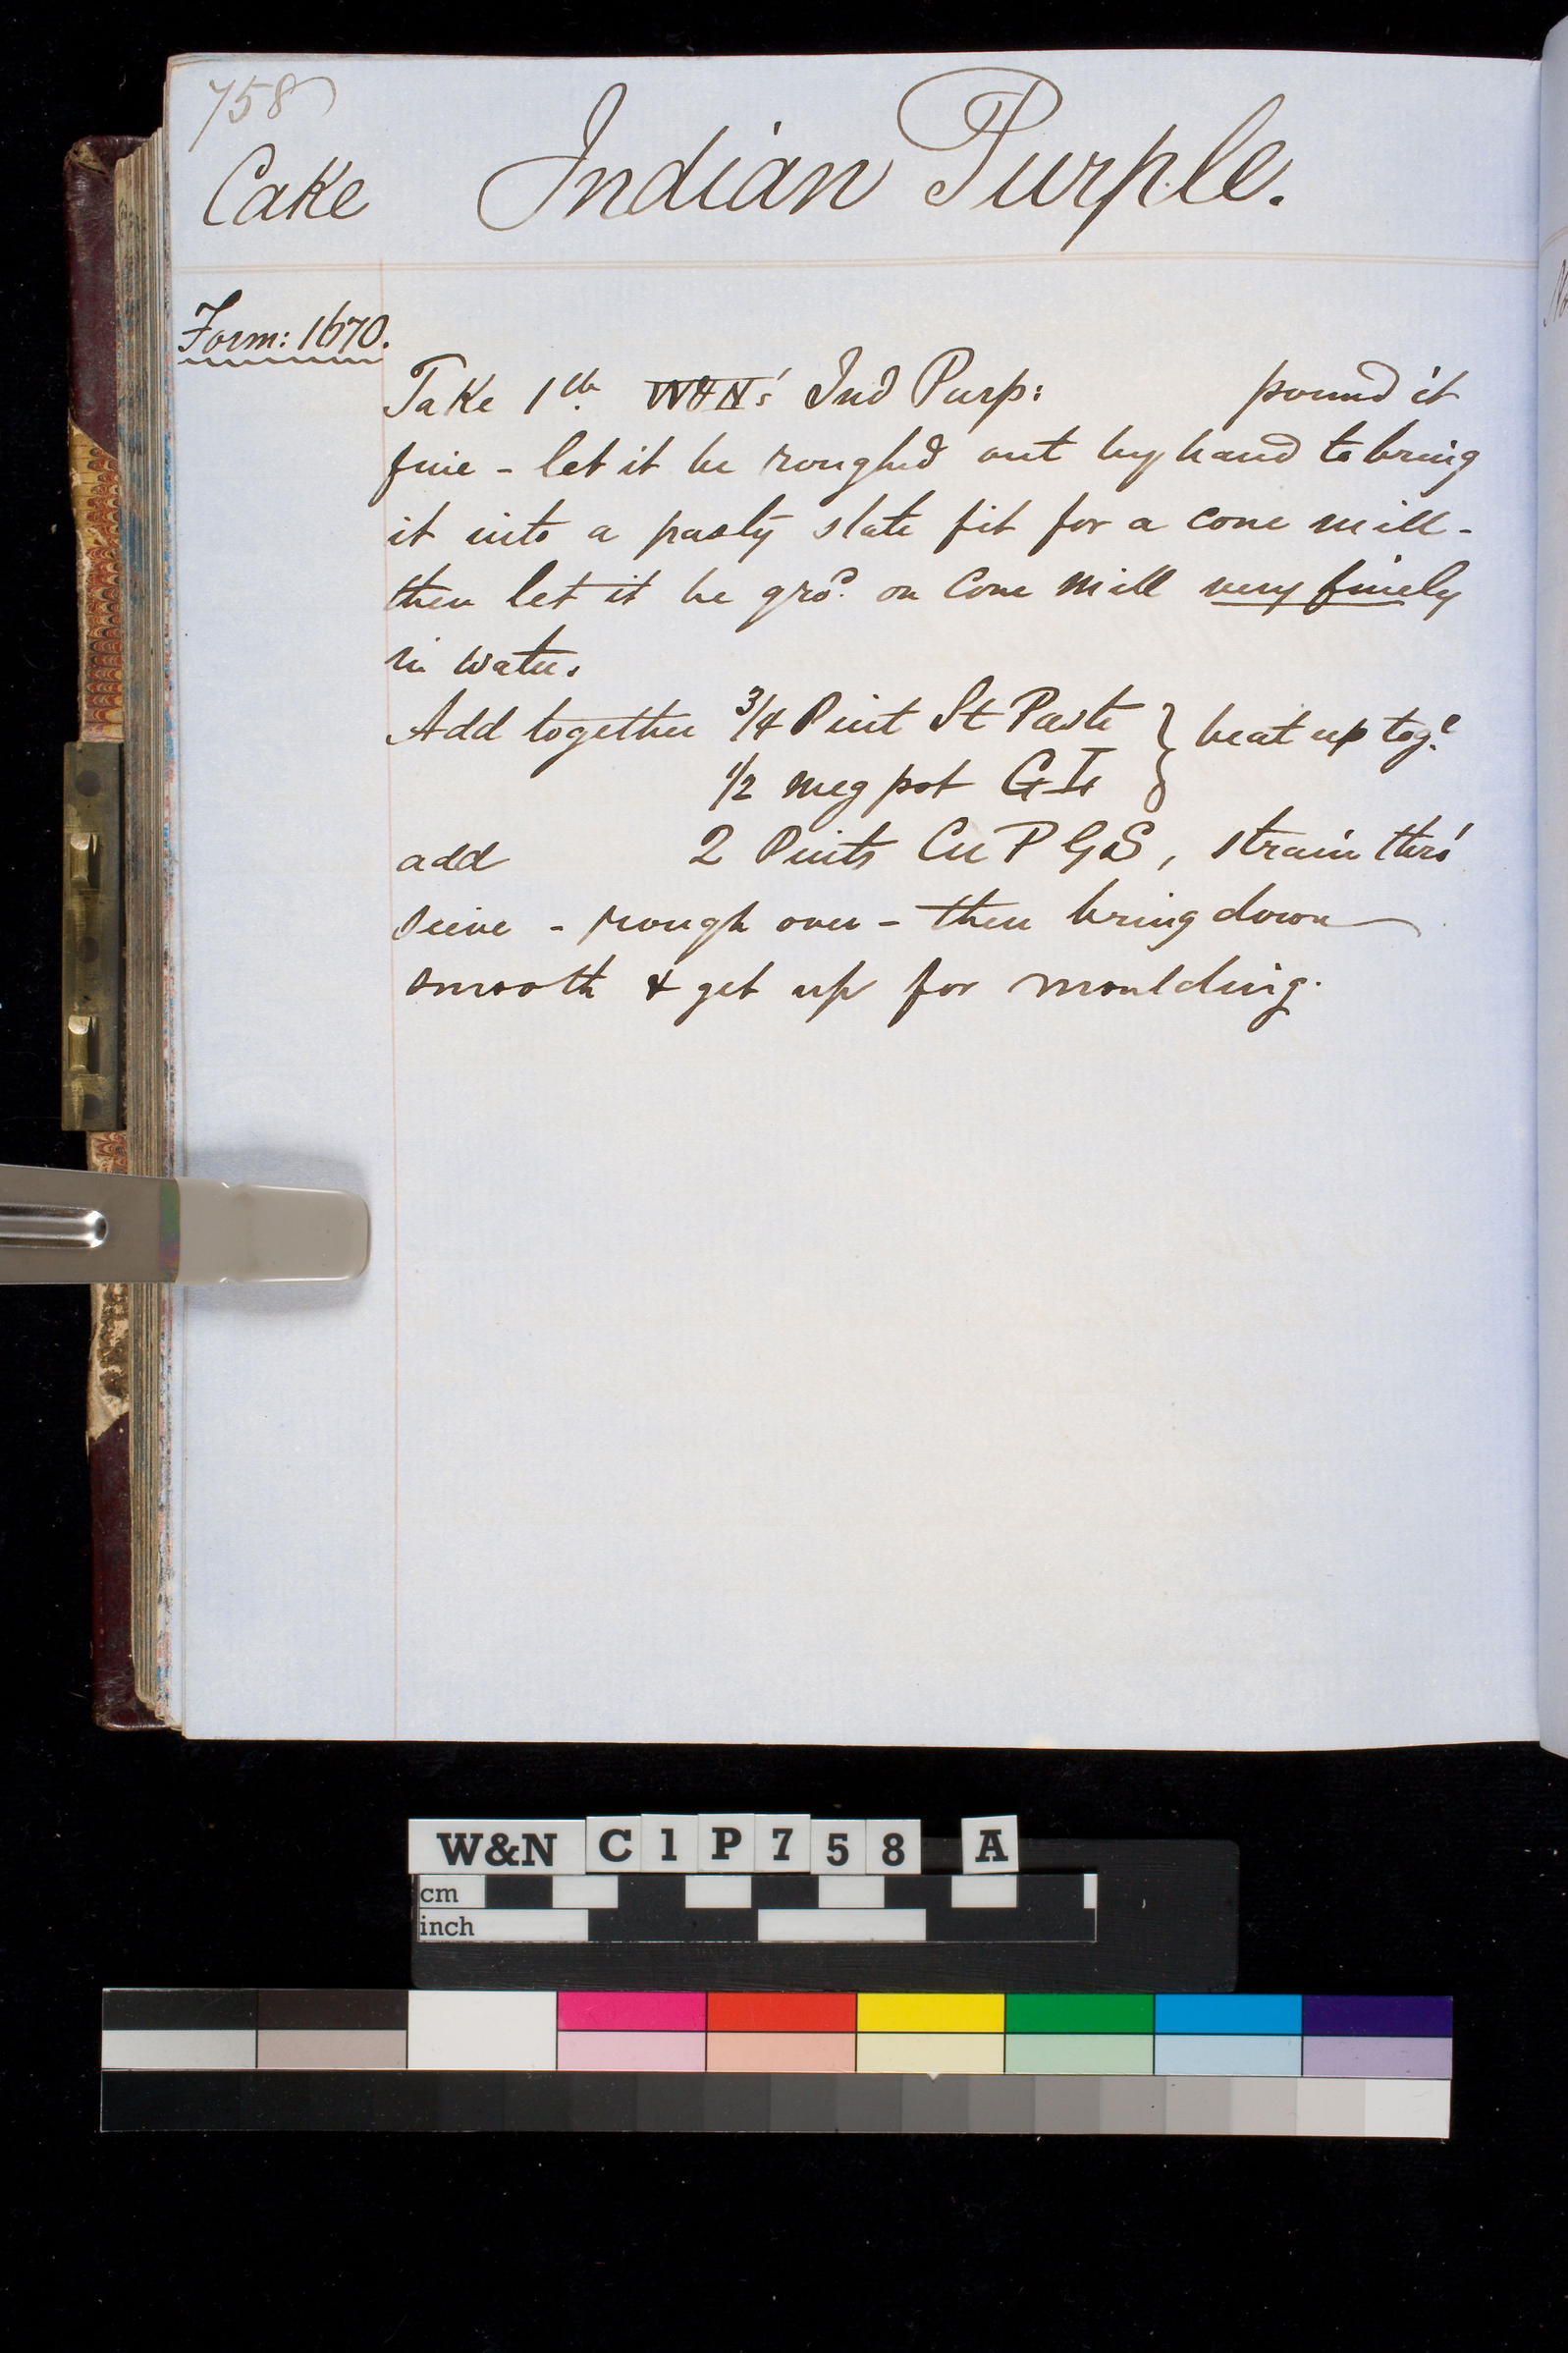 758
Cake Indian Purple.
Form: 1670.
Take 1 lb W&N's Ind Purp: pound it
fine - let it be roughed out by hand to bring
it into a pasty state fit for a cone mill -
then let it be gro^d. on Cone Mill very finely
in water.
Add together 3/4 Pint St Paste } beat up tog^r.
1/2 meg pot
add 2 Pints Cu P G&S, strain thro'
seive - rough over - then bring down
smooth & get up for moulding.
W&N C1P758 A
cm
inch